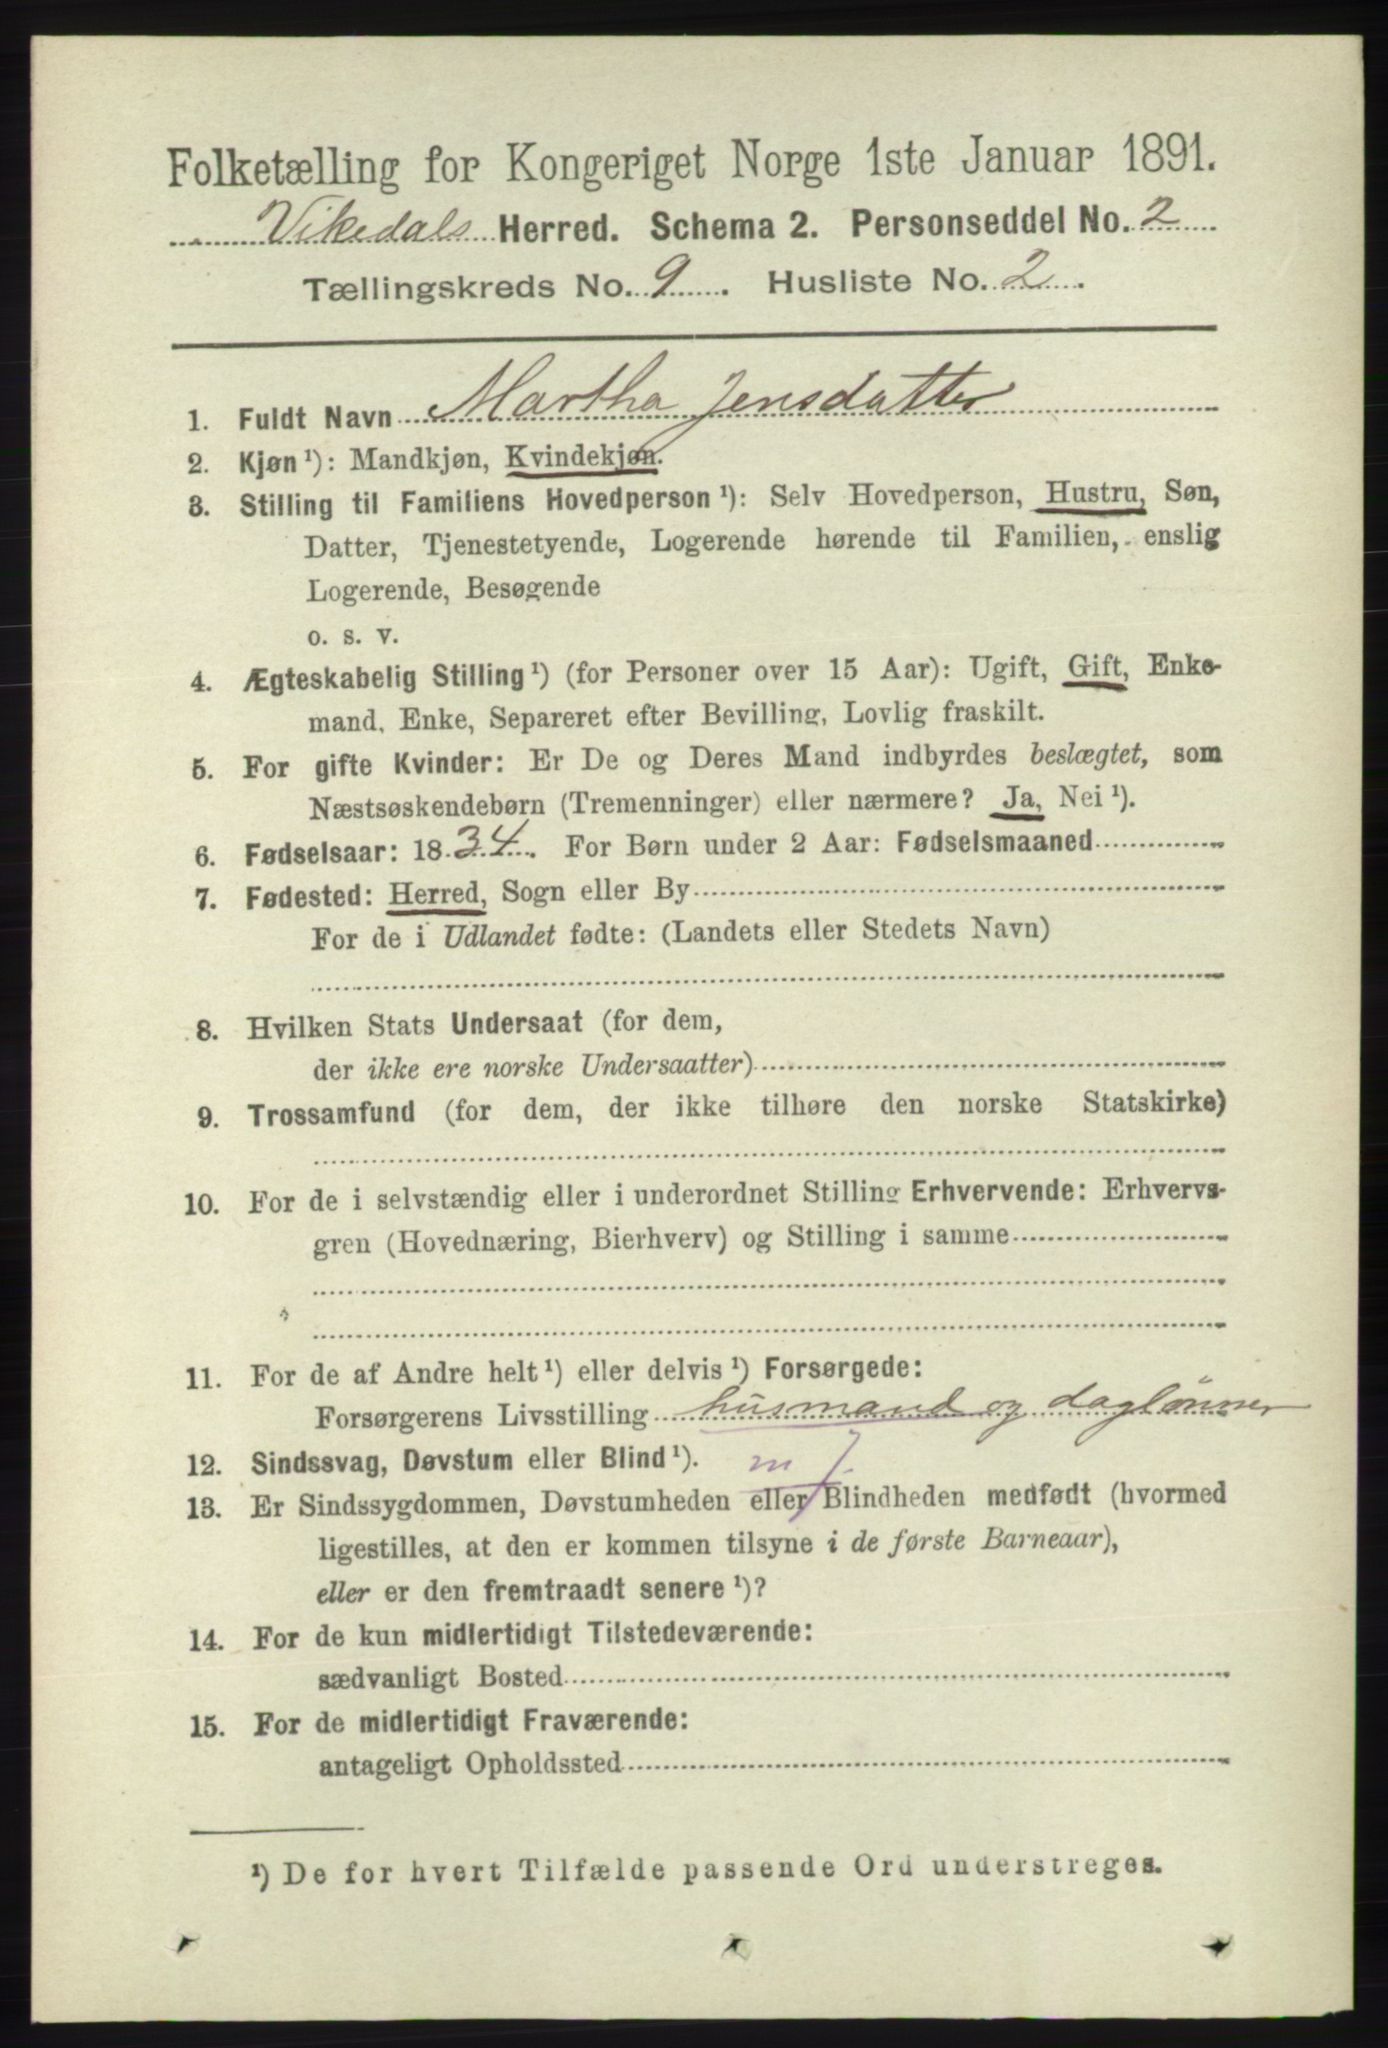 Folketælling for Kongeriget Norge 1ste Januar 1891.
Vikedals Herred. Schema 2. Personseddel No. 2
Tællingskreds No. 9. Husliste No. 2.
1. Fuldt Navn Martha Jensdatter
2. Kjøn ¹): Mandkjøn, Kvindekjøn.
3. Stilling til Familiens Hovedperson ¹): Selv Hovedperson, Hustru, Søn,
Datter, Tjenestetyende, Logerende hørende til Familien, enslig
Logerende, Besøgende
o. s. v.
4. Ægteskabelig Stilling ¹) (for Personer over 15 Aar): Ugift, Gift, Enke-
mand, Enke, Separeret efter Bevilling, Lovlig fraskilt.
5. For gifte Kvinder: Er De og Deres Mand indbyrdes beslægtet, som
Næstsøskendebørn (Tremenninger) eller nærmere? Ja, Nei ¹).
6. Fødselsaar: 1834. For Børn under 2 Aar: Fødselsmaaned
7. Fødested: Herred, Sogn eller By
For de i Udlandet fødte: (Landets eller Stedets Navn)
8. Hvilken Stats Undersaat (for dem,
der ikke ere norske Undersaatter)
9. Trossamfund (for dem, der ikke tilhøre den norske Statskirke)
10. For de i selvstændig eller i underordnet Stilling Erhvervende: Erhvervs-
gren (Hovednæring, Bierhverv) og Stilling i samme
11. For de af Andre helt ¹) eller delvis ¹) Forsørgede:
Forsørgerens Livsstilling husmand og daglönner
12. Sindssvag, Døvstum eller Blind ¹).
13. Er Sindssygdommen, Døvstumheden eller Blindheden medfødt (hvormed
ligestilles, at den er kommen tilsyne i de første Barneaar),
eller er den fremtraadt senere ¹)?
14. For de kun midlertidigt Tilstedeværende:
sædvanligt Bosted
15. For de midlertidigt Fraværende:
antageligt Opholdssted
¹) De for hvert Tilfælde passende Ord understreges.